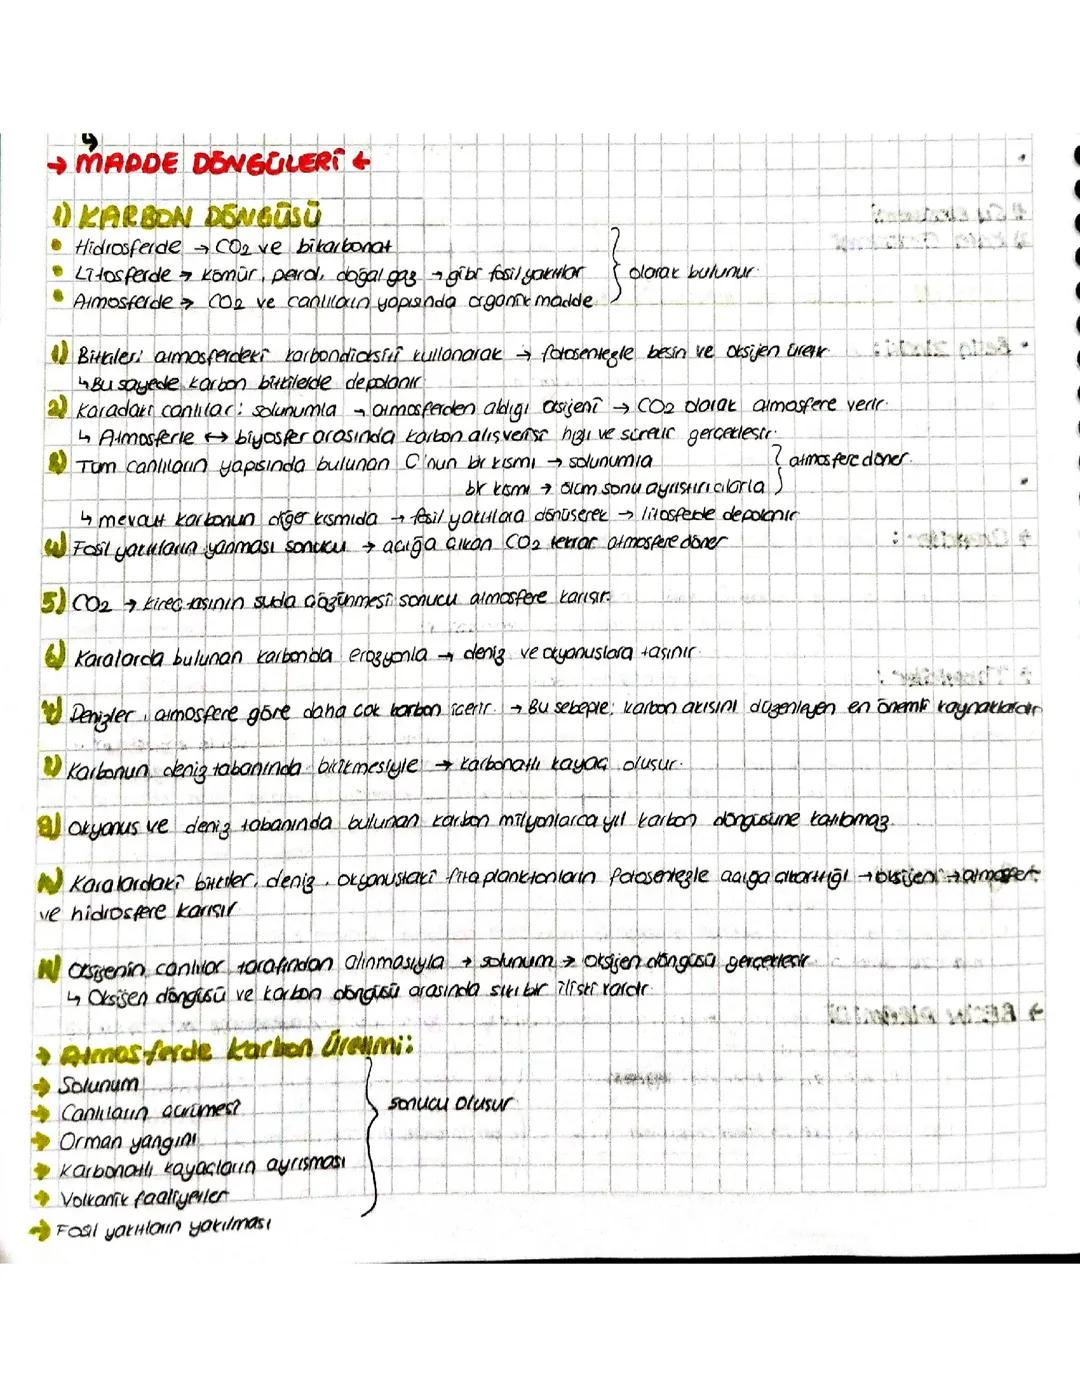 → MADDE DÖNGÜLERİ ←
1) KARBON DÖNGÜSÜ
• Hidrosferde → CO2 ve bikarbonat
• Litosferde → kömür, petrol, doğal gaz → gibi fosil yakıtlar } olarak bulunur.
• Atmosferde → CO2 ve canlıların yapısında organik madde
1) Bitkiler: atmosferdeki karbondioksiti kullanarak → fotosentezle besin ve oksijen üretir
↳ Bu sayede karbon bitkilerde depolanır
2) Karadaki canlılar: solunumla → atmosferden aldığı oksijeni → CO2 olarak atmosfere verir.
↳ Atmosferle ↔ biyosfer arasında karbon alışverişi hızı ve sürekli gerçekleşir.
Tüm canlıların yapısında bulunan C'nun bir kısmı → solunumla } atmosfere döner.
bir kısmı → ölüm sonu ayrıştırıcılarla
↳ mevcut karbonun diğer kısmıda → fosil yakıtlara dönüşerek → litosferde depolanır
Fosil yakıtların yanması sonucu → açığa çıkan CO2 tekrar atmosfere döner
5) CO2 → kireç taşının suda çözünmesi sonucu atmosfere karışır.
6) Karalarda bulunan karbonda erozyonla → deniz ve okyanuslara taşınır.
Denizler, atmosfere göre daha çok karbon içerir. → Bu sebeple; karbon akışını düzenleyen en önemli kaynaklardır
Karbonun deniz tabanında birikmesiyle → karbonatlı kayaç oluşur.
Okyanus ve deniz tabanında bulunan karbon milyonlarca yıl karbon döngüsüne katılamaz.
Karalardaki bitkiler, deniz, okyanustaki fitoplanktonların fotosentezle açığa çıkarttığı → oksijeni → atmosfer
ve hidrosfere karışır
Oksijenin canlılar tarafından alınmasıyla → solunum → oksijen döngüsü gerçekleşir
↳ Oksijen döngüsü ve karbon döngüsü arasında sıkı bir ilişki vardır.
→ Atmosferde Karbon Üretimi:
→ Solunum
→ Canlıların çürümesi } sonucu oluşur
→ Orman yangını
→ Karbonatlı kayaçların ayrışması
→ Volkanik faaliyetler
→ Fosil yakıtların yakılması